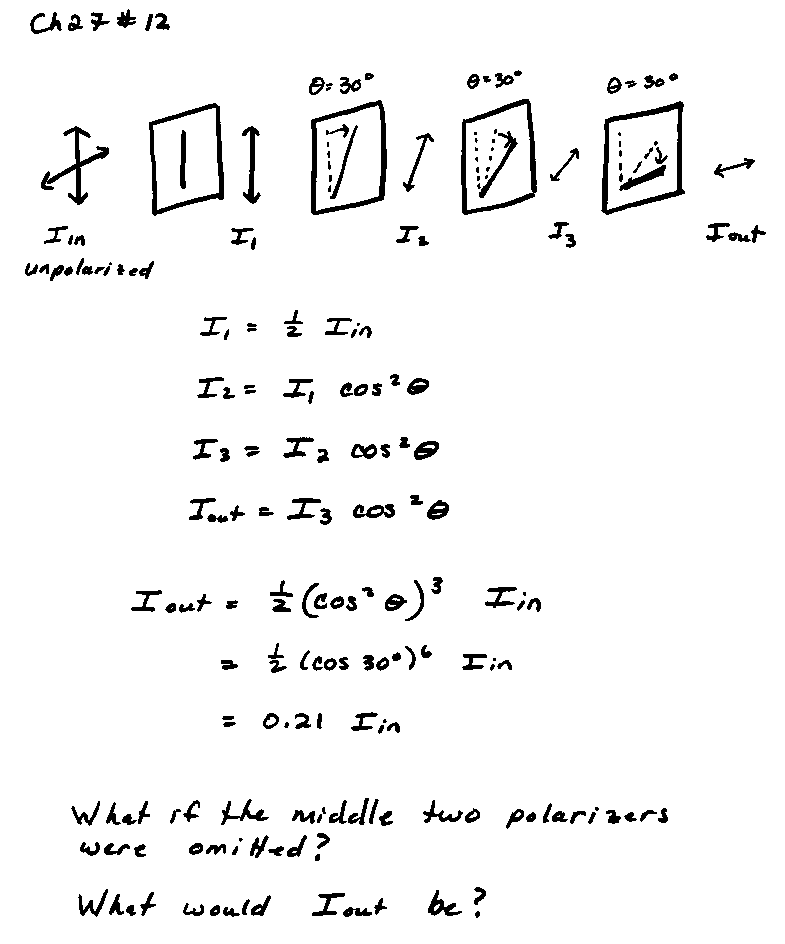 Ch 27 # 12
θ = 30° θ = 30° θ = 30°
I in I₁ I₂ I₃ I out
unpolarized
I₁ = ½ I in
I₂ = I₁ cos²θ
I₃ = I₂ cos²θ
I out = I₃ cos²θ
I out = ½ (cos²θ)³ I in
= ½ (cos 30°)⁶ I in
= 0.21 I in
What if the middle two polarizers
were omitted?
What would I out be?